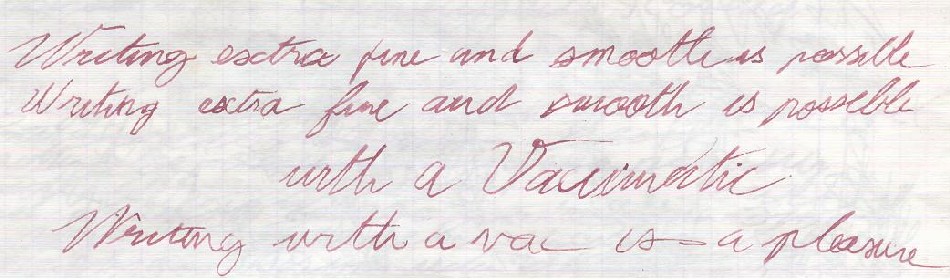 Writing extra fine and smooth is possible
Writing extra fine and smooth is possible
with a Vacumatic
Writing with a vac is a pleasure